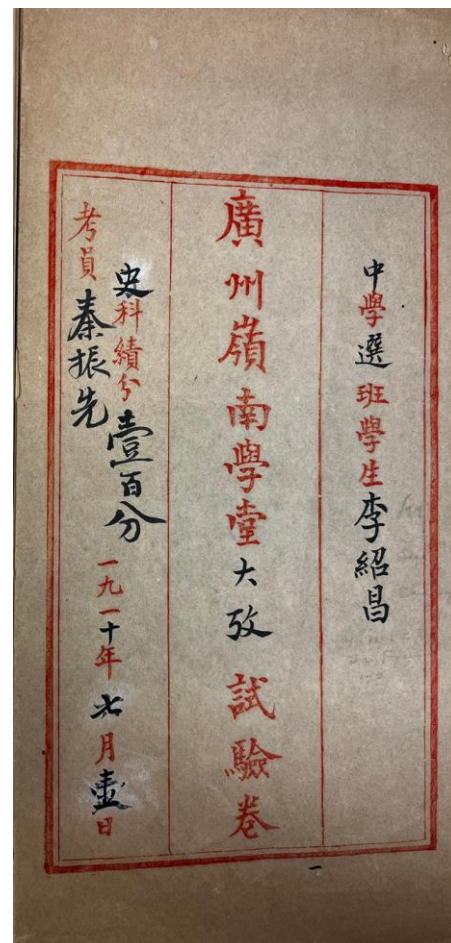 中學選班學生李紹昌
廣州嶺南學堂大攷試驗卷
史科績分壹百分
考員秦振先
一九一十年七月壹日